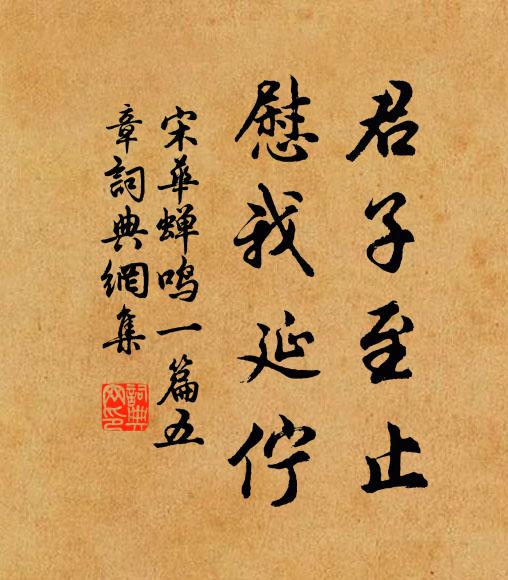 君子至止
慰我延佇
宋華蝉鸣一篇五
章詞典網集
詞典
网印